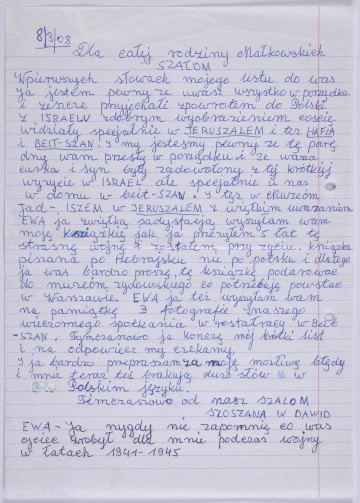 8/3/08
Dla całej rodziny Małkowskich
SZALOM
W pierwszych słowach mojego listu do was
ja jestem pewny że u was wszystko w porządku
i żeście przyjechali z powrotem do Polski
z ISRAELU z dobrym wyobrażeniem coście
widziały specjalnie w JERUSZALEM i też HAFIA
i BEIT-SZAN. I my jesteśmy pewny że tę parę
dny wam przeszły w porządku i że wasza
curka i syn były zadowolony z tej krótkiej
wyzycie w ISRAEL ale specjalnie u nas
w domu w BEIT-SZAN. I też w Muzeum
JAD-WSZEM w JERUSZALEM z wielkim uważaniem
EWA ja z wielką sadysfacją wysyłam wam
moje książkie jak ja przeżyłem 5 lat tę
straszne wojnę i zostałem przy życiu. Książka
pisana po Hebrajsku nie po polsku i dlatego
ja was bardzo proszę tę książkę podarować
do muzeum żydowskiego co potrzebują powstać
w Warszawie. EWA ja też wysyłam wam
na pamiątkę 3 fotografie z naszego
wieczornego spotkania w restauracy w BEIT
-SZAN. Tymczasowo ja kończę mój krótki list
i na odpowiecz my czekamy.
I ja bardzo przepraszam za moje możliwe błędy
i mnie teraz też brakują dużo słów w
Polskim języku.
Tymczasowo od nasz SZALOM
SZOSZANA W DAWID
EWA - Ja nygdy nie zapomnię co was
ojciec wrobył dla mnie podczas wojny
w latach 1941-1945